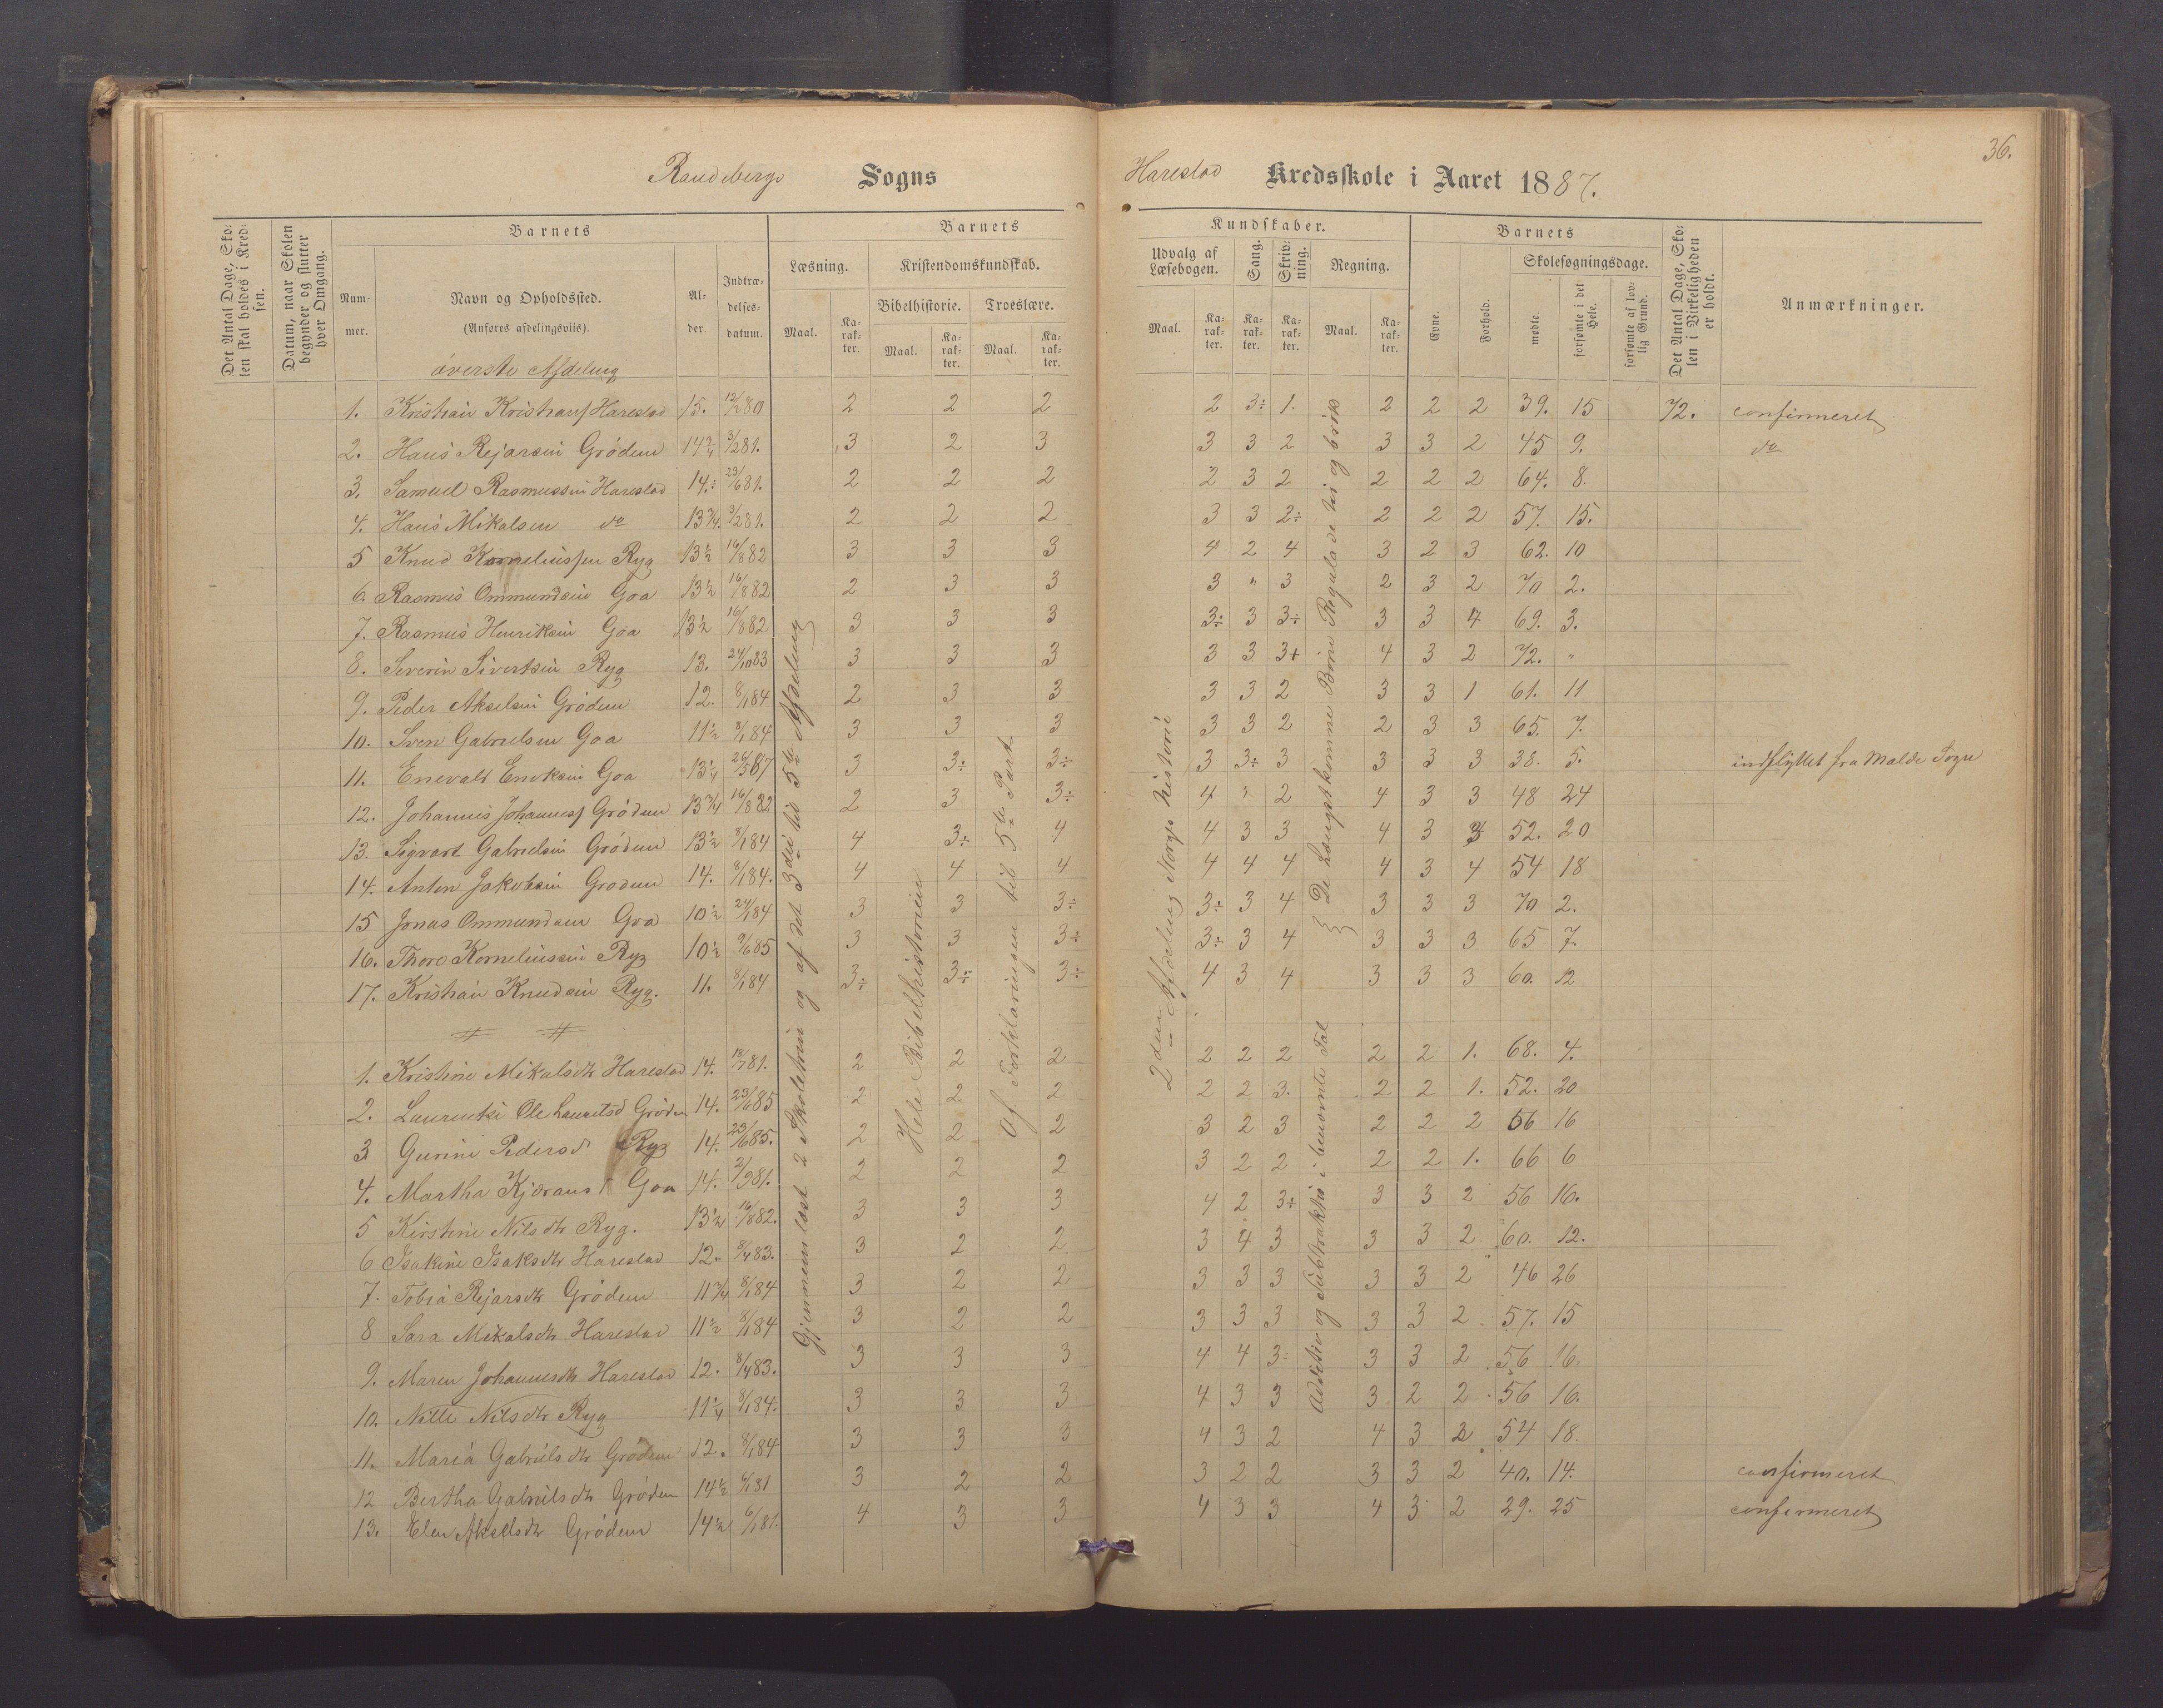 36.
Randebergs Sogns
Harestad Kredsskole i Aaret 1887.
Det Antal Dage, Sko-
len skal holdes i Kred-
sen.
Datum, naar Skolen
begynder og slutter
hver Omgang.
Barnets
Num-
mer.
Navn og Opholdssted.
(Anføres afdelingsviis).
Al-
der.
Indtræ-
delses-
datum.
Barnets
Læsning.
Maal.
Ka-
rak-
ter.
Kristendomskundskab.
Bibelhistorie.
Maal.
Ka-
rak-
ter.
Troeslære.
Maal.
Ka-
rak-
ter.
Kundskaber.
Udvalg af
Læsebogen.
Maal.
Ka-
rak-
ter.
Sang.
Ka-
rak-
ter.
Skriv-
ning.
Ka-
rak-
ter.
Regning.
Maal.
Ka-
rak-
ter.
Barnets
Evne.
Forhold.
Skolesøgningsdage.
mødte.
forsømte i det
Hele.
forsømte af lov-
lig Grund.
Det Antal Dage, Sko-
len i Virkeligheden
er holdt.
Anmærkninger.
øverste Afdeling
1. Kristian Kristians Harestad 15. 12/280 2 2 2 2 3÷ 1. 2 2 2 39. 15 72. confirmeret
2. Hans Rejarsen Grødem 14 3/4 3/281. 3 2 3 3 3 2 3 3 2 45 9. do
3. Samuel Rasmussen Harestad 14.÷ 23/681. 2 2 2 2 3 2 2 2 2 64. 8.
4. Hans Mikalsen do 13 3/4. 3/281. 2 2 2 3 3 2÷ 2 2 2 57. 15.
5 Knud Korneliussen Ryg 13 1/2 16/882 3 3 3 4 2 4 3 2 3 62. 10
6. Rasmus Ommundsen Goa 13 1/2 16/882 2 3 3 3 " 3 2 3 2 70 2.
7. Rasmus Henriksen Goa 13 1/2 16/882 3 3 3 3÷ 3 3÷ 3 3 4 69. 3.
8. Severin Sivertsen Ryg 13. 24/1083 3 3 3 3 3 3+ 4 3 2 72. "
9. Peder Akselsen Grødem 12. 8/184 2 3 3 3 3 2 3 3 1 61. 11
10. Sven Gabrielsen Goa 11 1/2 8/184 3 3 3 3 3 2 2 3 3 65. 7.
11. Enevald Eneksen Goa 13 1/4 26/587 3 3÷ 3÷ 3 3÷ 3 3 3 3 38. 5. indflyttet fra Malde Sogn
12. Johannes Johannes Grødem 13 3/4 16/882 2 3 3÷ 4 " 2 4 3 3 48 24
13. Sigvart Gabrielsen Grødem 13 1/2 8/184 4 3÷ 4 4 3 3 4 3 52. 20
14. Anton Jakobsen Grødem 14. 8/184. 4 4 4 4 4 4 4 3 4 54 18
15 Jonas Ommundsen Goa 10 1/2 24/184 3 3 3÷ 3÷ 3 4 3 3 3 70 2.
16. Thore Korneliussen Ryg 10 1/2 9/685 3 3 3÷ 3÷ 3 4 3 3 3 65 7.
17. Kristian Knudsen Ryg. 11. 8/184 3÷ 3÷ 3÷ 4 3 4 3 3 3 60. 12
1. Kristine Mikalsdtr Harestad 14. 18/781. 2 2 2 2 2 2 2 2 1. 68. 4.
2. Laurentse Ole Lauritsd Grødem 14. 23/685 2 2 2 2 2 3. 2 2 1. 52. 20
3 Gurine Pedersd Ryg 14. 23/685. 2 2 2 3 2 3 2 2 2 56 16
4. Martha Kjørans Goa 14. 2/981. 2 2 2 3 2 2 2 2 1. 66 6
5 Kirstine Nilsdtr Ryg. 13 1/2 16/882. 3 3 3 4 2 3÷ 3 3 2 56 16.
6 Isakine Isaksdtr Harestad 12. 8/483. 3 2 2 3 4 3 3 3 2 60. 12.
7. Tobia Rejarsdtr Grødem 11 3/4 8/184 3 2 2 3 3 3 3 3 2 46 26
8 Sara Mikalsdtr Harestad 11 1/2 8/184 3 2 2 3 3 3 3 3 2. 57. 15
9. Maren Johannesdtr Harestad 12. 8/483. 3 3 3 4 4 3÷ 3 3 2 56 16.
10. Nille Nilsdtr Ryg 11 1/4 8/184. 3 3 3 4 3 3 3 2 2 56 16.
11. Maria Gabrielsdtr Grødem 12. 8/184 3 3 3 4 3 2 4 3 2 54 18.
12 Bertha Gabrielsdtr Grødem 14 1/2 6/181 3 2 2 3 2 2 3 3 2 40. 14. confirmeret
13. Elen Akselsdtr Grødem 14 1/2 6/181. 4 3 3 4 3 3 4 3 2 29. 25 confirmeret
Gjennemlæst 2 Skoletrin og af det 3die til 5te Afdeling
Hele Bibelhistorien
Af Forklaringen til 5te Part
2den Afdeling Norges historie
De Længstkomne Børn Regula de tri og brøk
Addition og Subtraktion i benævnte Tal